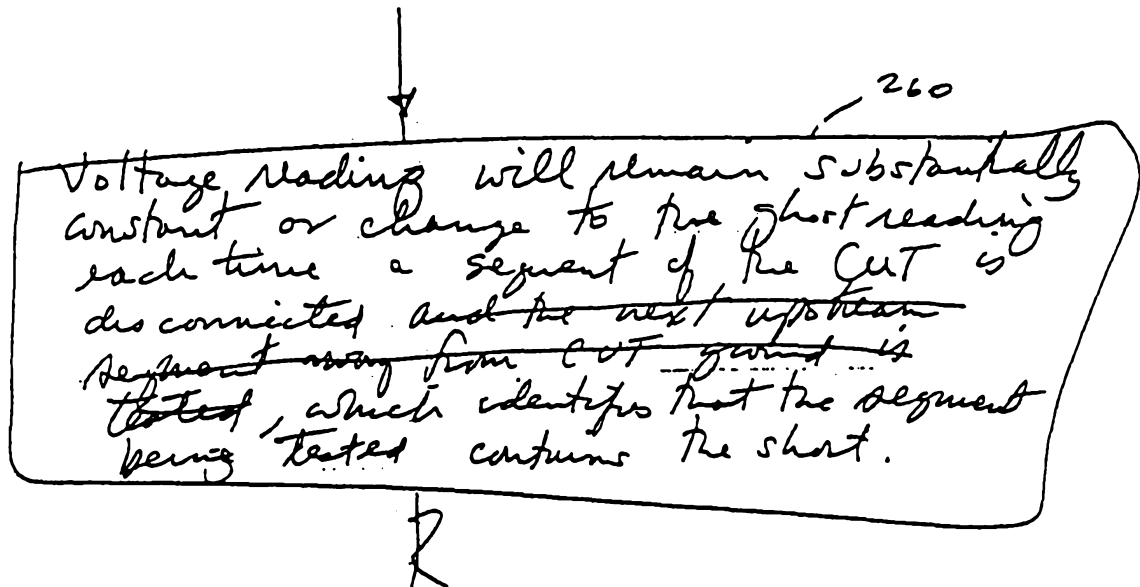 260
Voltage reading will remain substantially
constant or change to the ghost reading
each time a segment of the CUT is
disconnected and the next upstream
segment away from CUT ground is
tested, which identifies that the segment
being tested contains the short.
R